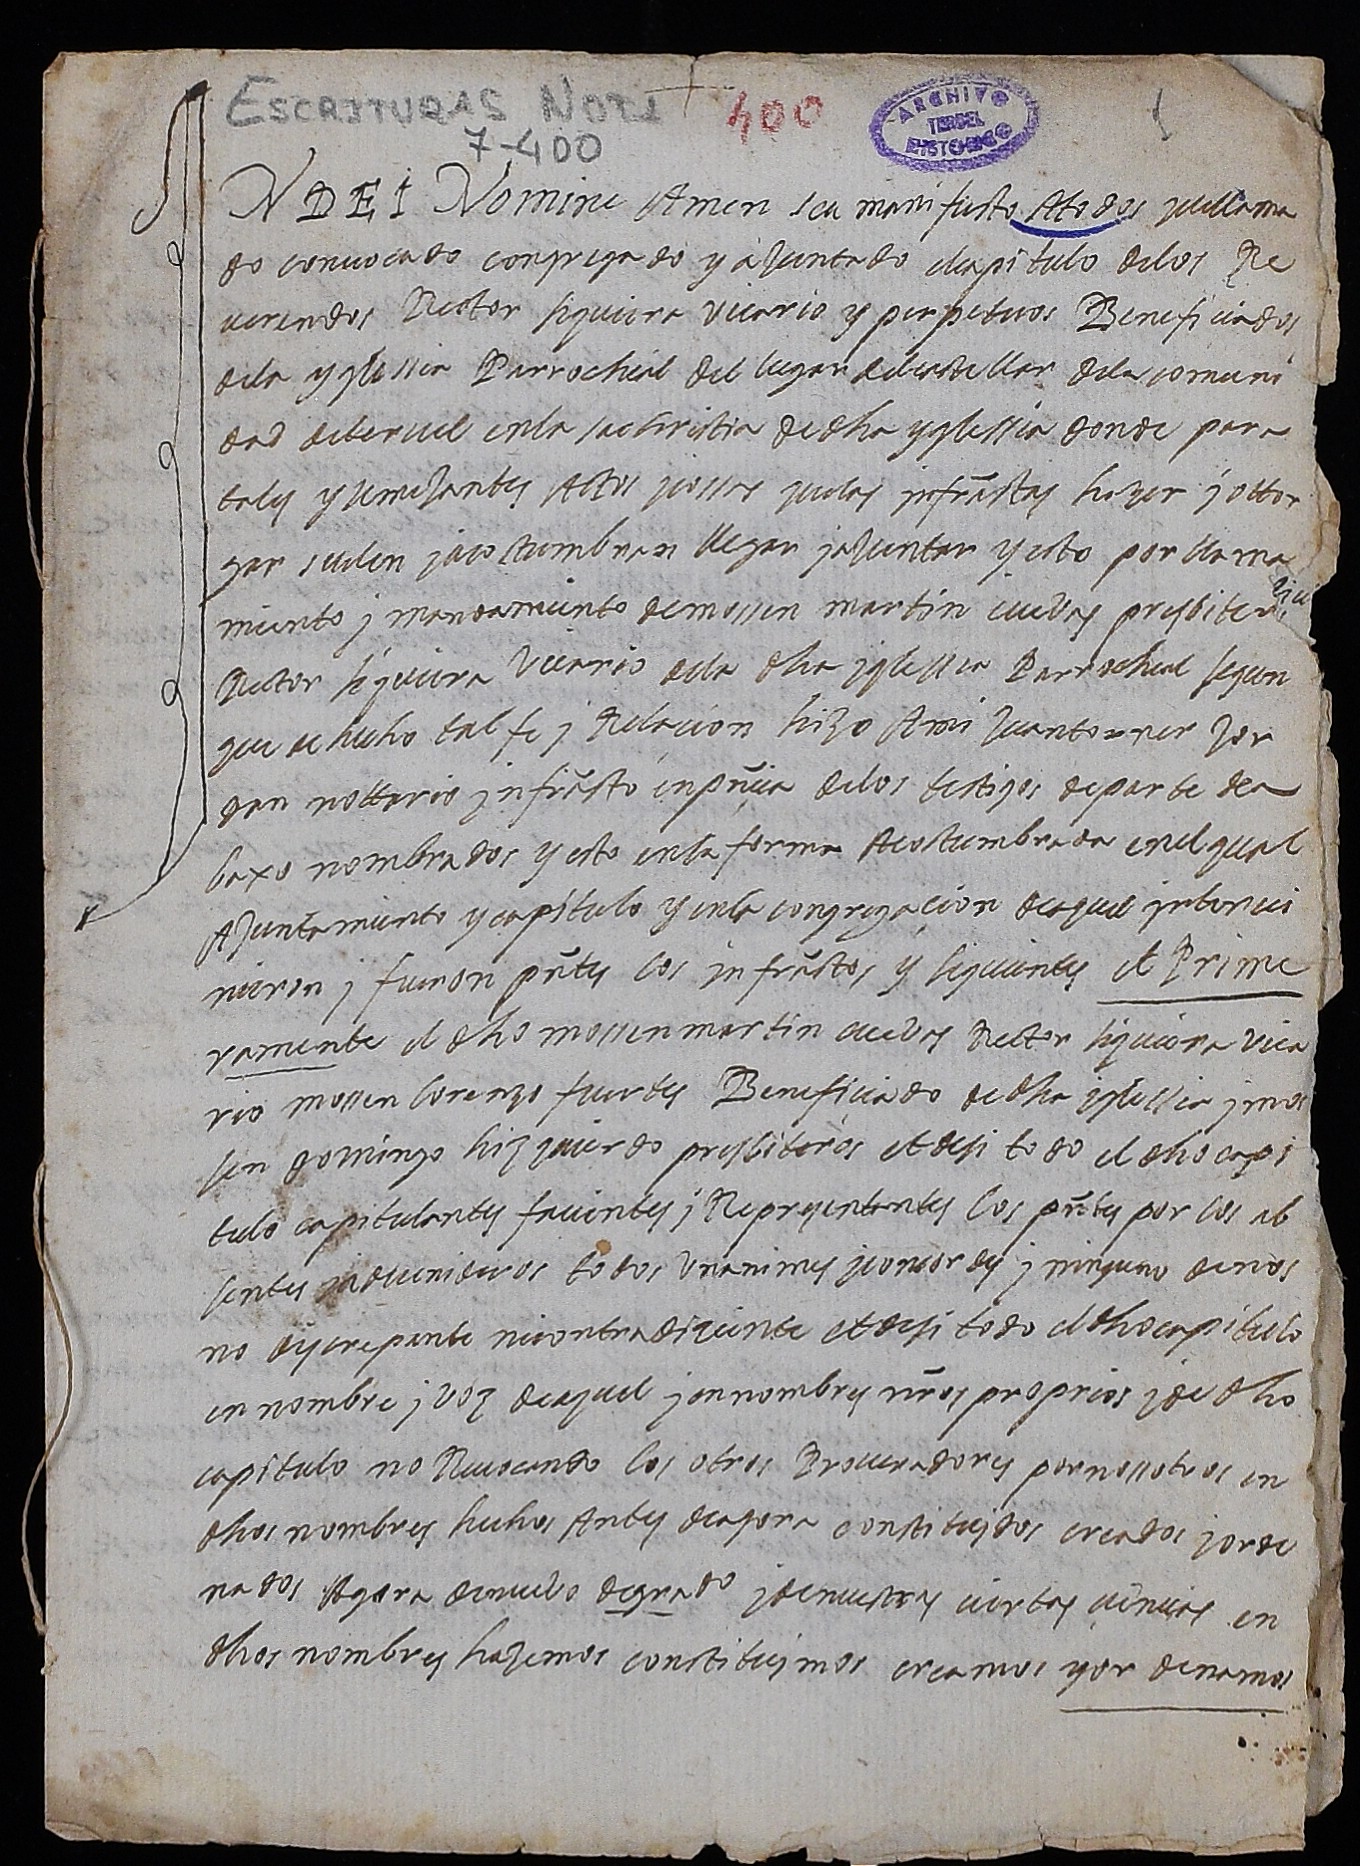 ESCRITURAS NOTS
7-400
400
ARCHIVO
TERUEL
HISTORICO
1
IN DEI Nomine Amen sea manifiesto Atodos quellama
do conuocado congregado y ajuntado elcapitulo delos Re
uerendos Rector siquiera vicario y perpetuos Beneficiados
dela yglessia Parrochial del lugar delcastellar dela comuni
dad deteruel enla sachristia dedha yglessia donde para
tales ysemejantes Actos ycossas quelas jnfrãstas hazer j ottor
gar suelen jacostumbran llegar jajuntar yesto por llama
miento j mandamiento demossen martin cuebas presbitero
Rector siquiera Vicario dela dha jglessia Parrochial segun
que dehecho tal fe j Relacion hizo Ami Juan
gan nottario jnfrãsto enpñcia delos testigos departe dea
baxo nombrados yesto enla forma Acostumbrada enelqual
Ajuntamiento ycapitulo yenla congregacion deaquel jnterui
nieron j fueron pñtes los jnfrãstos y siguientes et Prime
ramente el dho mossen martin cuebas Rector siquiera vica
rio mossen lorenzo fuertes Beneficiado dedha jglessia jmos
sen domingo hizquierdo presbiteros etdesi todo el dho capi
tulo capitulantes facientes j Representantes los pñtes por los ab
sentes jaduenideros todos vnanimes jconcordes j ninguno denos
no discrepante nicontradiciente etdesi todo eldhocapitulo
en nombre j voz deaquel jennombres nr̃os proprios jde dho
capitulo no Reuocando los otros Procuradores pornossotros en
dhos nombres hechos Antes deagora constituydos creados jorde
nados Agora denuebo degrado jdenuestras ciertas ciencias en
dhos nombres hazemos constituymos creamos yor denamos